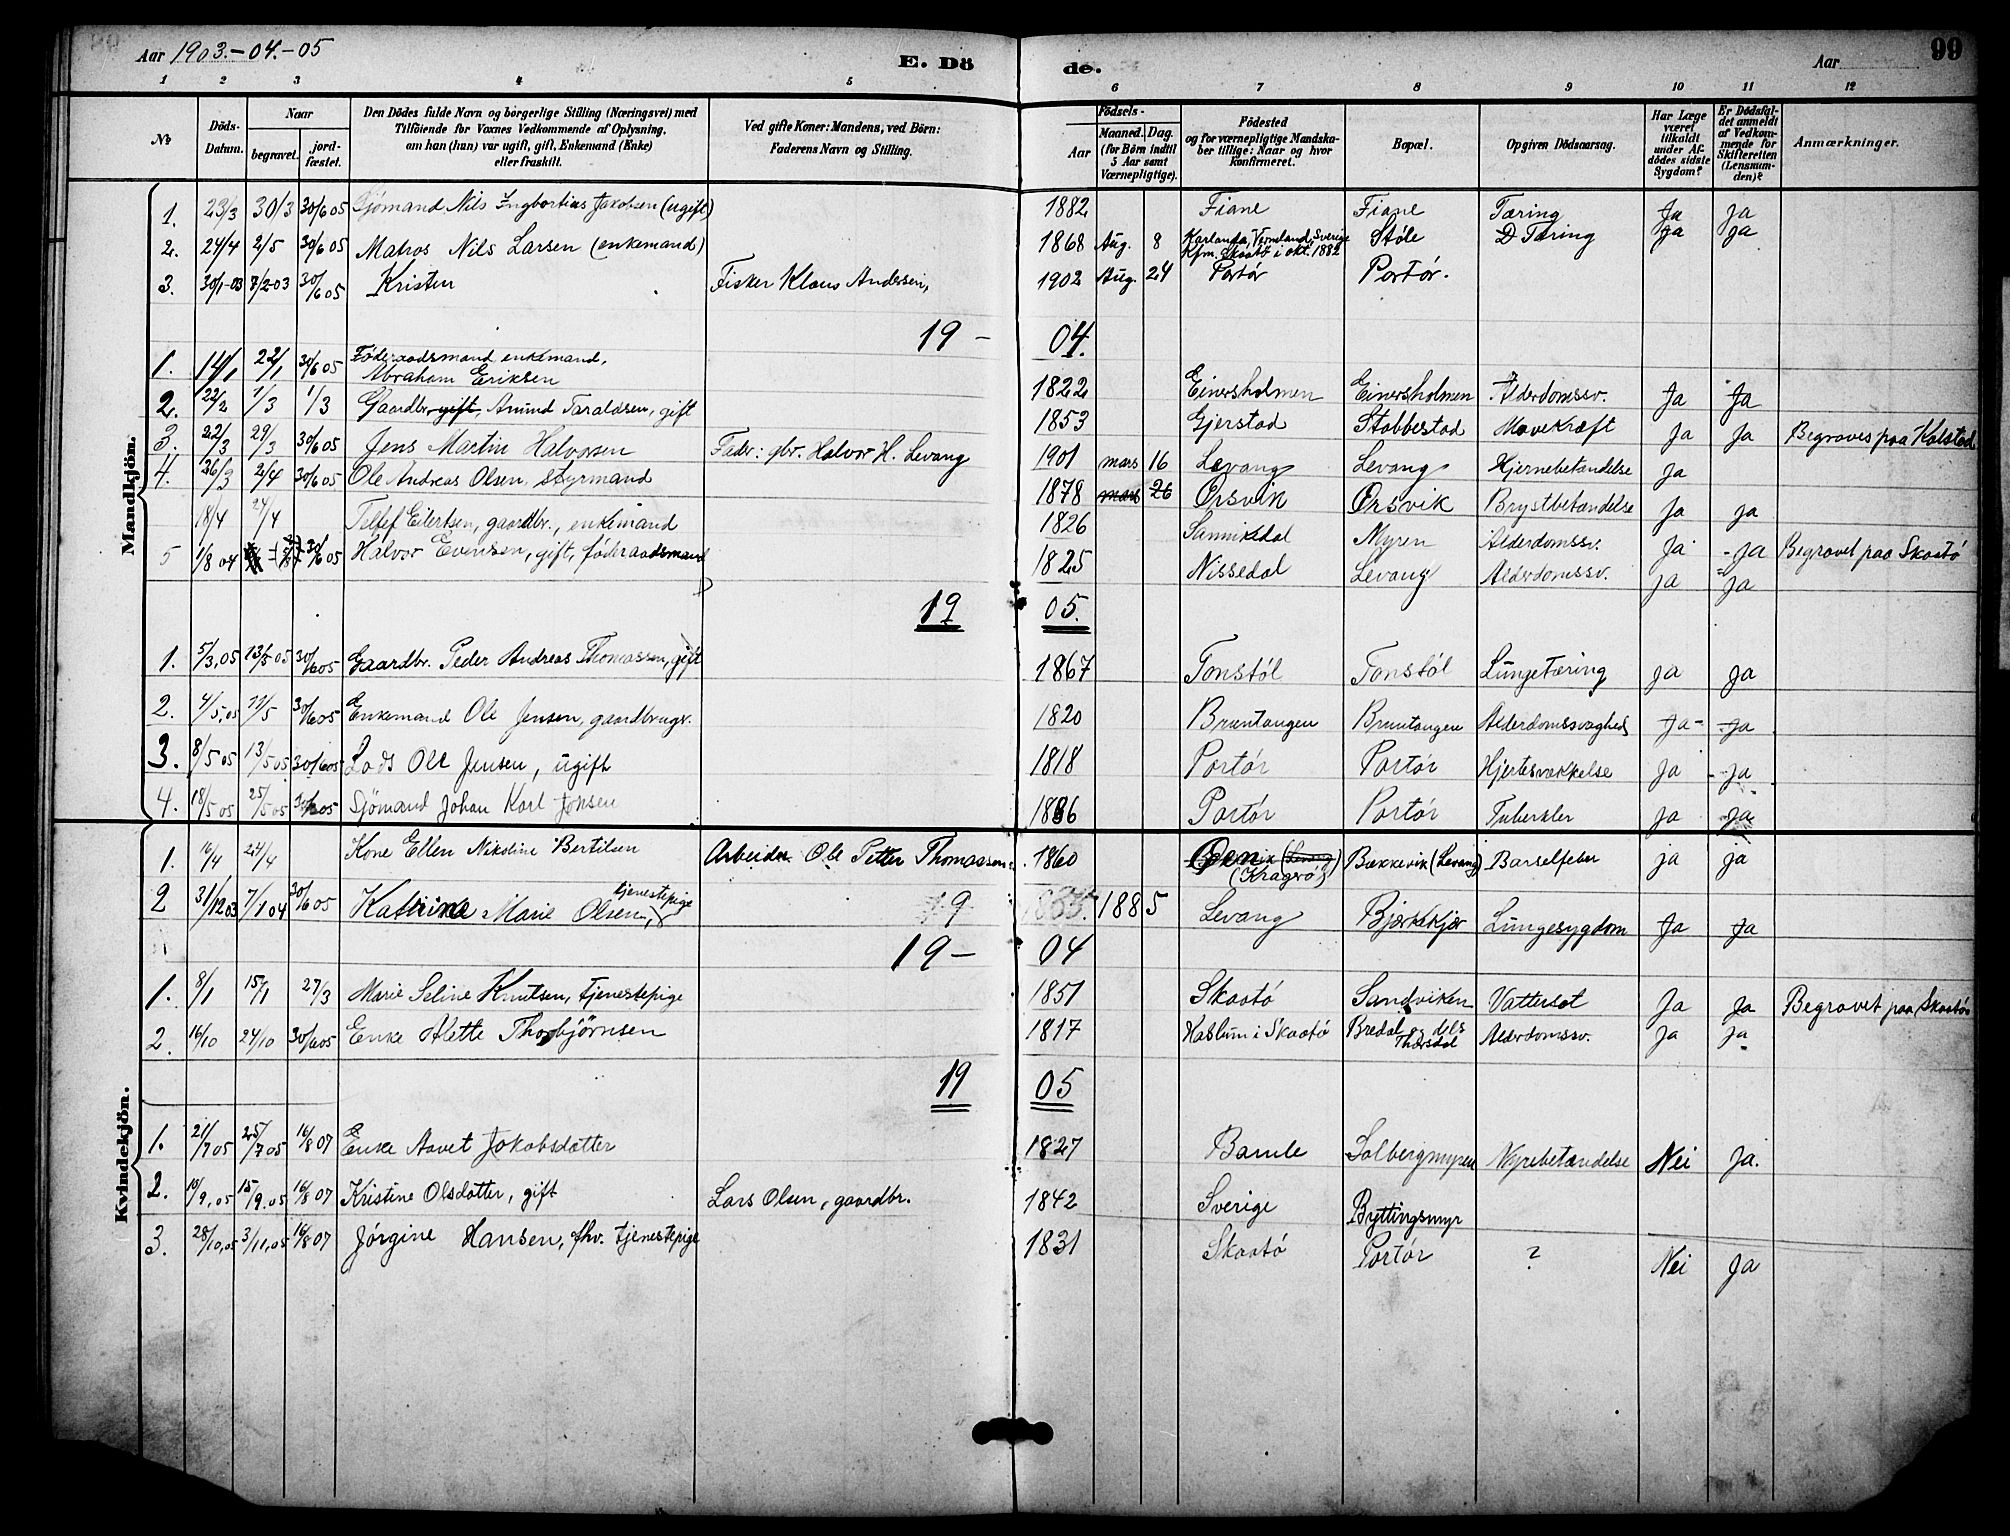 Aar 1903.-04.-05
E. Dö
de.
Aar
99
1 2 3 4 5 6 7 8 9 10 11 12
№
Döds-Datum.
Naar
begravet.
jord-fæstet.
Den Dödes fulde Navn og borgerlige Stilling (Næringsvei) med
Tilföiende for Voxnes Vedkommende af Oplysning,
om han (hun) var ugift, gift, Enkemand (Enke)
eller fraskilt.
Ved gifte Koner: Mandens, ved Börn:
Faderens Navn og Stilling.
Födsels-
Aar
Maaned. Dag.
(for Börn indtil
5 Aar samt
Værnepligtige).
Födested
og for værnepligtige Mandska-
ber tillige: Naar og hvor
konfirmeret.
Bopæl.
Opgiven Dödsaarsag.
Har Læge
været
tilkaldt
under Af-
dödes sidste
Sygdom?
Er Dödsfal-
det anmeldt
af Vedkom-
mende for
Skifteretten
(Lensman-
den)?
Anmærkninger.
Mandkjön.
1. 23/3 30/3 30/6 05 Sjömand Nils Ingbortius Jakobsen (ugift) 1882 Fiane Fiane Tæring Ja Ja
2. 24/4 2/5 30/6 05 Matros Nils Larsen (enkemand) 1868 Aug. 8 Karlanda, Vermland, Sverige Kfm. Skaatö i okt. 1882 Støle Tæring Ja Ja
3. 30/1-03 8/2-03 30/6 05 Kristen Fisker Klaus Andersen, 1902 Aug. 24 Portör Portör.
19 - 04.
1. 14/1 22/1 30/6 05 Föderaadsmand enkemand, Abraham Eriksen 1822 Einersholmen Einersholmen Alderdomssv. Ja Ja
2. 22/2 1/3 1/3 Gaardbr. gift, Anund Taraldsen, gift 1853 Gjerstad Stabbestad Mavekræft Ja Ja Begraves paa Kalstad
3. 22/3 29/3 30/6 05 Jens Martin Halvorsen Fader: gbr. Halvor H. Levang 1901 mars 16 Levang Levang Hjernebetændelse Ja
4. 26/3 2/4 30/6 05 Ole Andreas Olsen, Styrmand 1878 mars 26 Ørsvik Ørsvik Brystbetændelse Ja Ja
18/4 24/4 Tellef Eilertsen, gaardbr., enkemand 1826 Sannikdal Myren Alderdomssv. Ja Ja Begravet paa Skaatö
5 1/8 04 30/6 05 Halvor Evensen, gift, föderaadsmand 1825 Nissedal Levang Alderdomssv. Ja Ja
19 05.
1. 5/3, 05 13/5 05 30/6 05 Gaardbr. Peder Andreas Thomassen, gift 1867 Tonstöl Tonstöl Lungetæring Ja Ja
2. 4/5, 05 11/5 30/6 05 Enkemand Ole Jensen, gaardbruger. 1820 Bruntangen Bruntangen Alderdomssvaghed Ja Ja
3. 8/5 05 13/5 05 30/6 05 Lods Ole Jensen, ugift 1818 Portör Portör Hjertesvækkelse Ja Ja
4. 18/5 05 25/5 05 30/6 05 Sjömand Johan Karl Jonsen 1886 Portör Portör Tuberkler Ja Ja
Kvindekjön.
1. 16/4 24/4 Kone Ellen Nikoline Bertilsen Arbeider Ole Petter Thomassen 1860 Öen (Kragerö) Bækkevik (Levang) Barselfeber Ja Ja
2 31/12 03 7/1 04 30/6 05 Kathrina Marie Olsen, tjenestepige 19 1885 Levang Bjørkekjær Lungesygdom Ja Ja
19 - 04
1. 8/1 15/1 27/3 Marie Seline Knutsen, tjenestepige 1851 Skaatö Sandviken Vattersot Ja Ja Begravet paa Skaatö
2. 16/10 24/10 30/6 05 Enke Alette Thorbjørnsen 1817 Kaslum i Skaatö Bredal og dels Thorsdal Alderdomssv. Ja Ja
19 05
1. 21/7 05 25/7 05 16/8 07 Enke Aavet Jakobsdatter 1827 Bamle Solbergmyren Nyrebetændelse Nei Ja.
2. 10/9, 05 15/9. 05 16/8 07 Kristine Olsdatter, gift Lars Olsen, gaardbr. 1842 Sverige Byttingsmyr
3. 28/10, 05 3/11, 05 16/8 07 Jörgine Hansen, fhv. tjenestepige 1831 Skaatö Portör ? Nei Ja